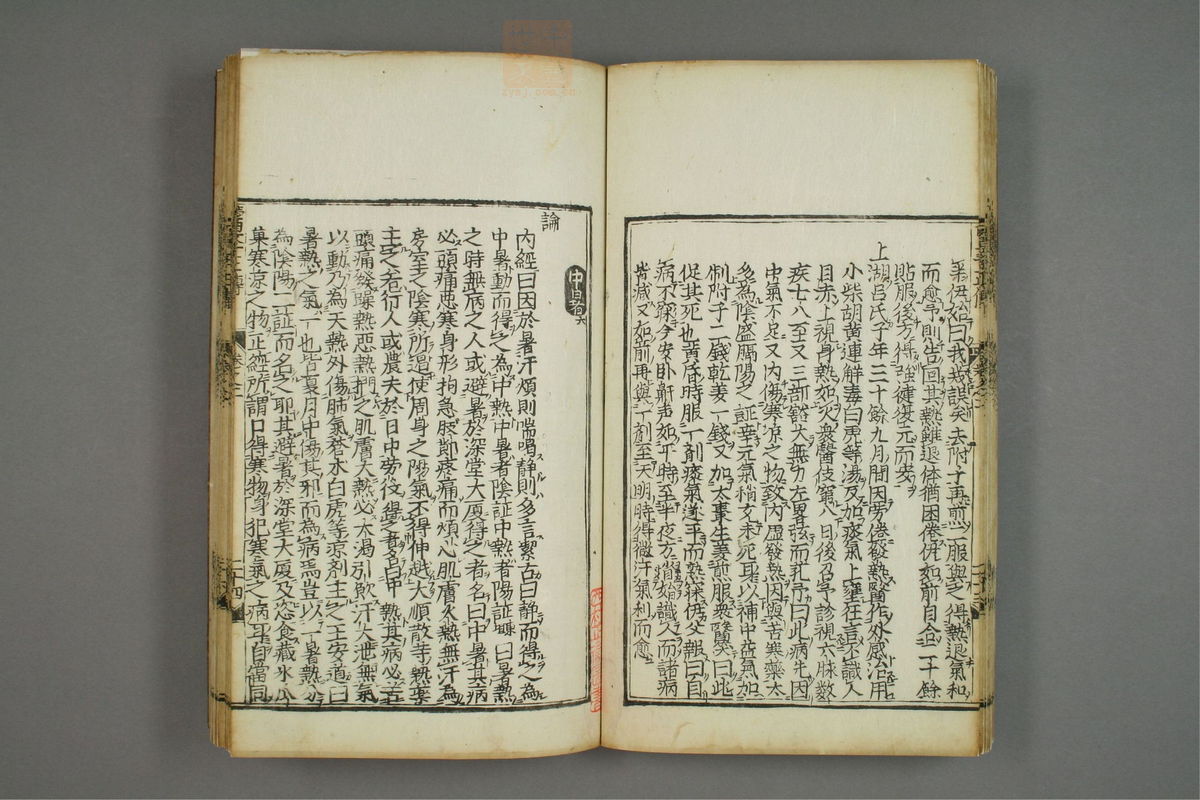 弟伊芳曰我哉誤矣去附子再煎一服與之得熱退氣和
而愈予則告回其熱雖退体猶困倦伊如前自合二十餘
貼服後方得強健復元而安
上湖呂氏子年三十餘九月間因勞倦發熱醫作外感治用
小柴胡黄連解毒白虎等湯反加痰氣上壅狂言不識人
目赤上視身熱如火衆醫伎窮八日後召予診視六脉數
疾七八至又三部豁大無力左畧弦而芤予曰此病先因
中氣不足又内傷寒凉之物致内虚發熱因與苦寒藥太
多為陰盛膈陽之証幸元氣稍支未死耳以補中益氣加
制附子二錢乾姜一錢又加大棗生姜煎服衆醫笑曰此
促其死也黄昏時服一剤痰氣遂平而熱伊父報曰自
病不寐今安卧鼾声如平時至半夜方始識人而諸病
皆减又如前再與一剤至天明時得微汗氣利而愈
中暑六
論
内經曰因於暑汗煩則喘喝静則多言潔古曰静而得之為
中暑動而得之為中熱中暑者陰証中熱者陽証 曰暑熱
之時無病之人或避暑於深堂大厦得之者名曰中暑其病
必頭痛惡寒身形拘急肢節疼痛而煩心肌膚火熱無汗為
房室之陰寒所遏使周身之陽氣不得伸越大順散等熱藥
主之若行人或農夫於日中勞役得之者名曰中熱其病必苦
頭痛發躁熱惡熱捫之肌膚大熱必大渇引飲汗大泄無氣
以動乃為天熱外傷肺氣蒼水白虎等凉剤主之王安道曰
暑熱之氣一也皆夏月中傷其邪而為病焉豈以一暑熱分
為陰陽二証而名之耶其避暑於深堂大厦及恣食藏氷瓜
菓寒凉之物正經所謂口得寒物身犯寒氣之病耳自當同
卷之二
二十四